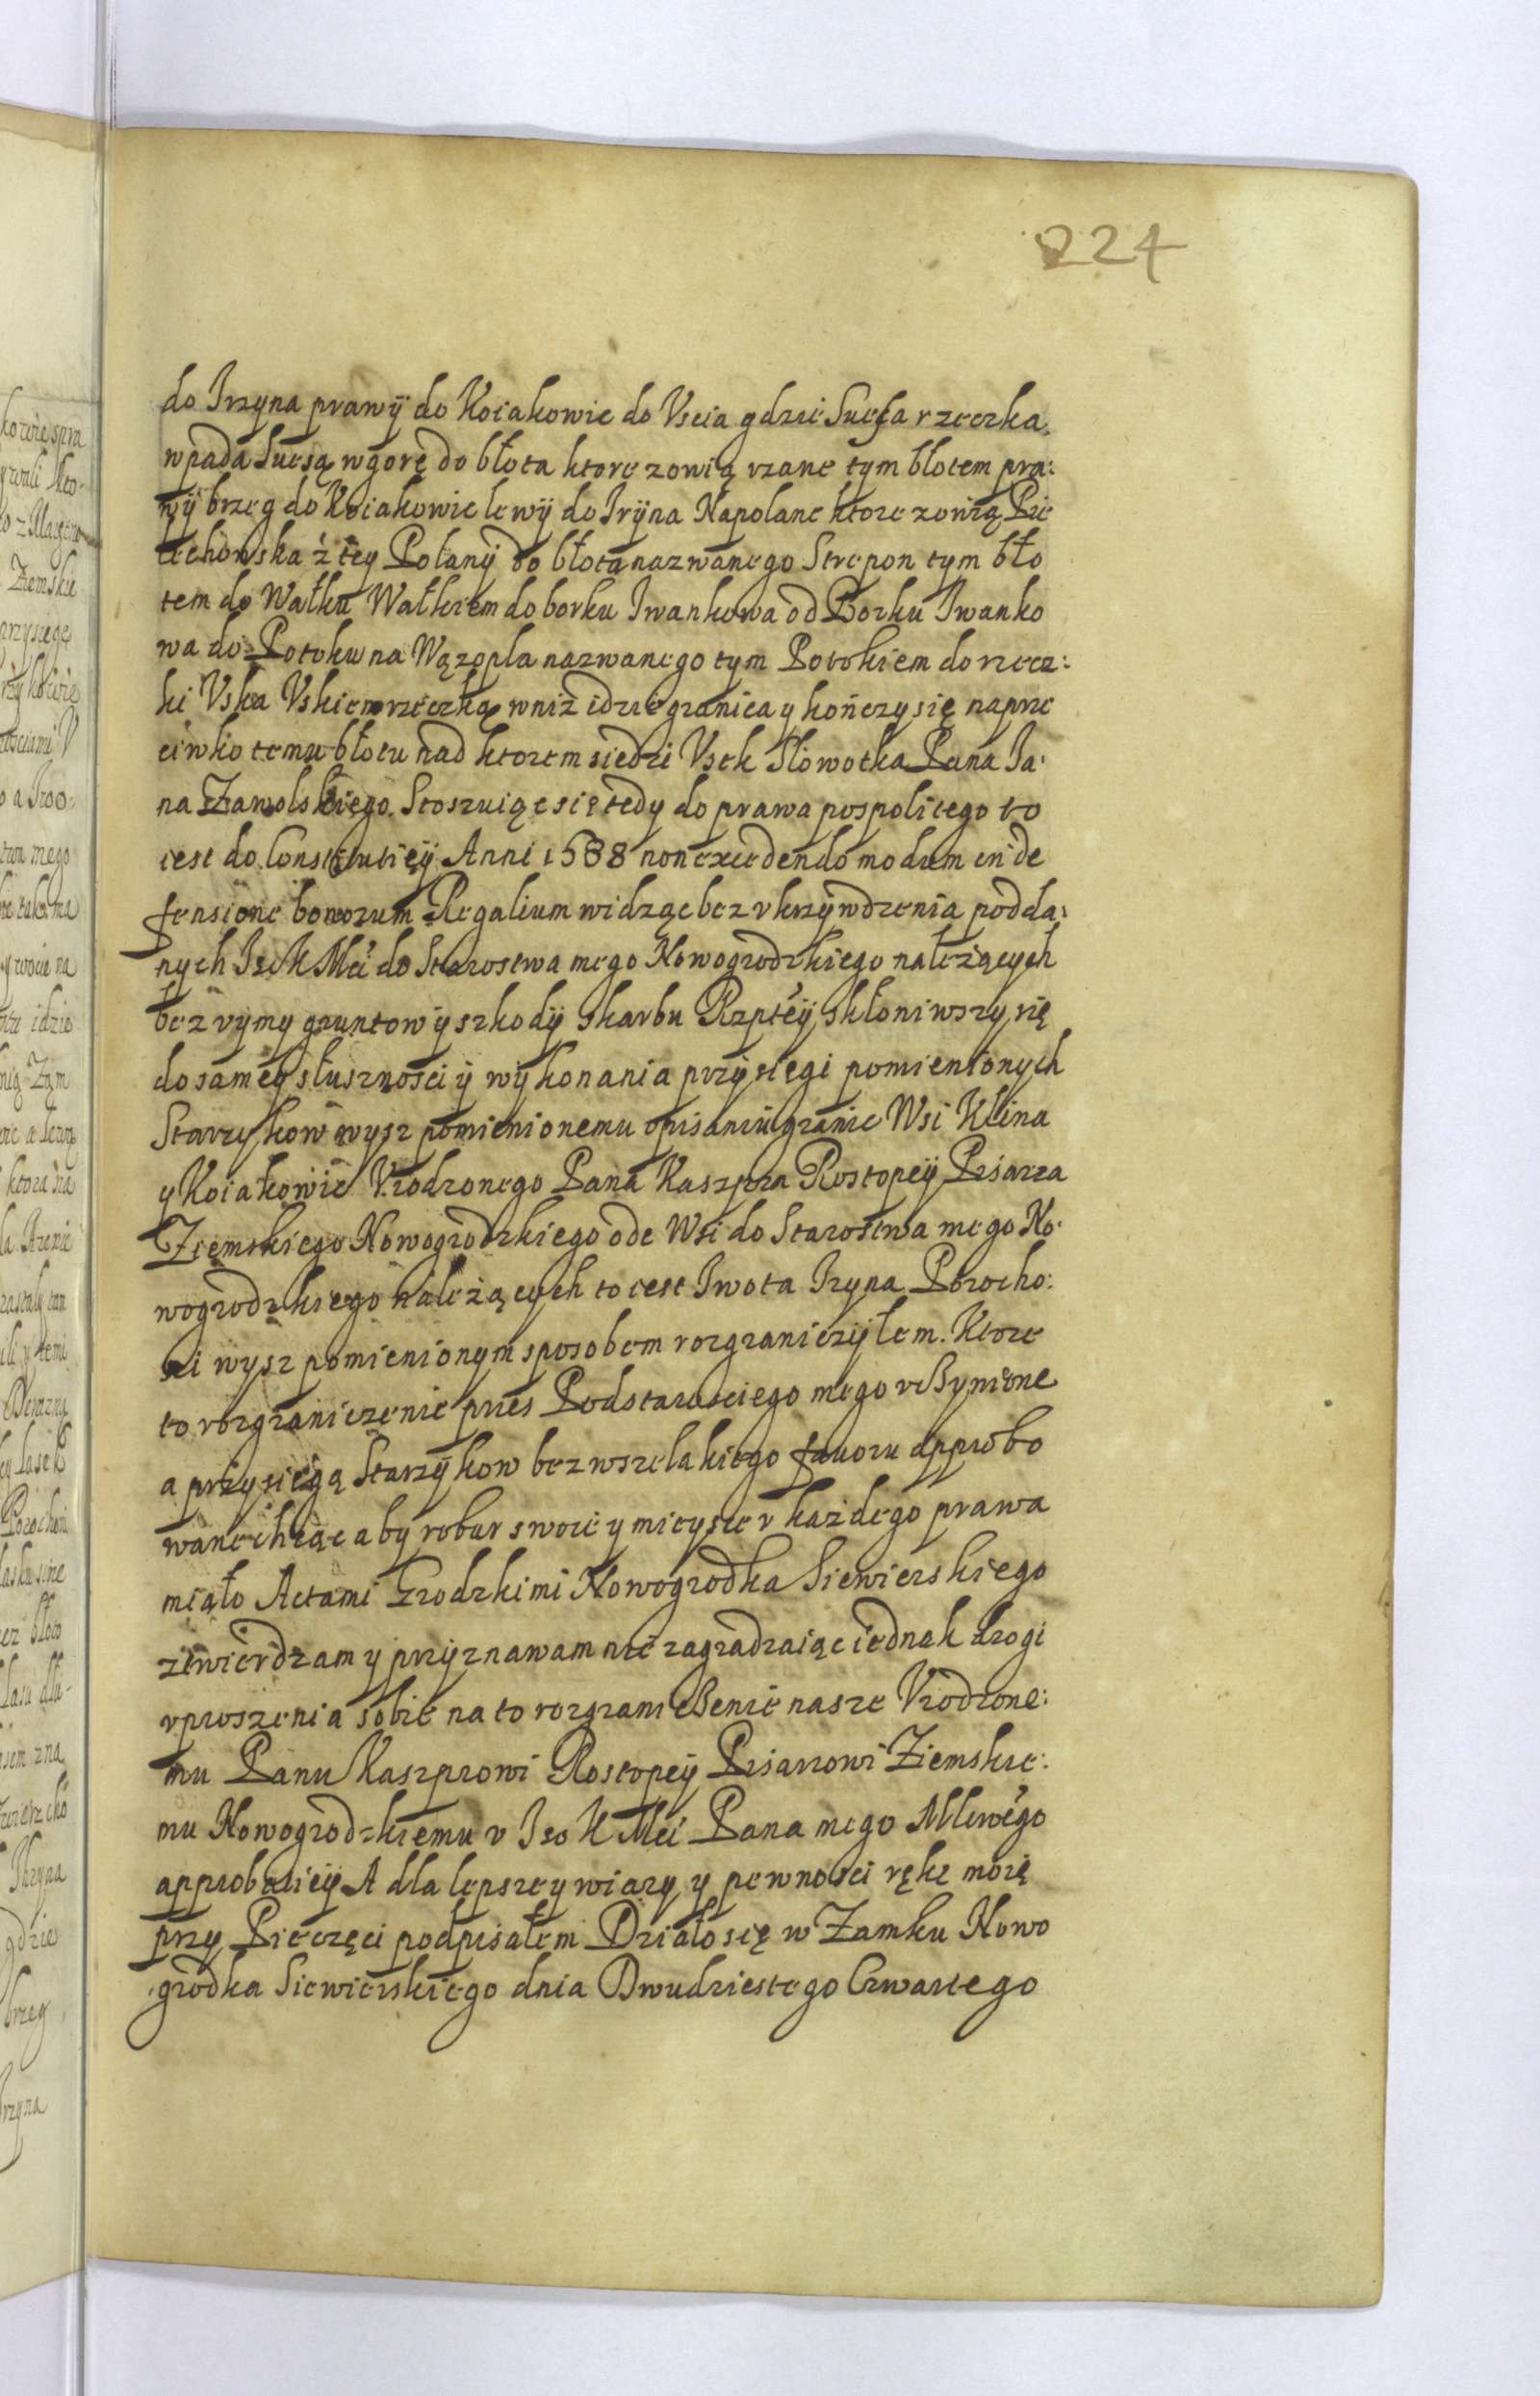 224
do Irzyna prawÿ do Koiakowic do Vscia gdzie Suesa rzeczka
wpada Suesą wgorę do błota ktore zowią rzane tym błotem pra:
wÿ brzeg do Koiakowic lewÿ do Irÿna Napolane ktore zowią Pie
techowska z tey Polanÿ do błota nazwanego Strepon tym bło
tem do Wałku Wałkiem do borku Iwankowa od Borku Iwanko
wa do Potoku na Wązopla nazwanego tym Potokiem do rzecz:
ki Vska Vskiem rzeczką wniz idzie granica y kończy się naprze
ciwko temu błotu nad ktorem siedzi Vsek Słowotka Pana Ja:
na Zawolskiego. Stoszuiąc się tedy do prawa pospolitego to
iest do Constitutiÿ Anni 1588 non excedendo modum in de
fensione bonorum Regalium widząc bez vkrzÿwdzenia podda:
nych Ieo K Mci do Starostwa mego Nowogrodzkiego nalezących
bez vymy gruntow ÿ szkodÿ skarbu Rzpteÿ skłoniwszy się
do samey słusznosci ÿ wÿkonania przÿsięgi pomienionych
Starzykow wysz pomienionemu opisaniu granic Wsi Klina
y Koiakowic Vrodzonego Pana Kaszpra Rostopeÿ Pisarza
Ziemskiego Nowogrodzkiego ode Wsi do Starostwa mego No:
wogrodzkiego należących to iest Iwota Iryna Porocho:
ni wysz pomienionym sposobem rozgraniczÿłem. Ktore
to rozgraniczenie przes Podstarosciego mego vcżynione
a przÿsięgą Starzÿkow bez wszelakiego fauoru approbo
wane chcąc aby robur swoie y mieysce v każdego prawa
miało Actami Grodzkimi Nowogrodka Siewierskiego
ztwierdzam y przÿznawam nie zagradzaiąc iednak drogi
vproszenia sobie na to rozgraniczenie nasze Vrodzone:
mu Panu Kaszprowi Rostopeÿ Pisarzowi Ziemskie:
mu Nowogrodzkiemu v Ieo K Mci Pana mego Młłwego
approbatieÿ A dla lepszey wiary y pewnosci rękę moię
przy Pieczęci podpisałem Działo się w Zamku Nowo
gródka Siewierskiego dnia Dwudziestego Czwartego